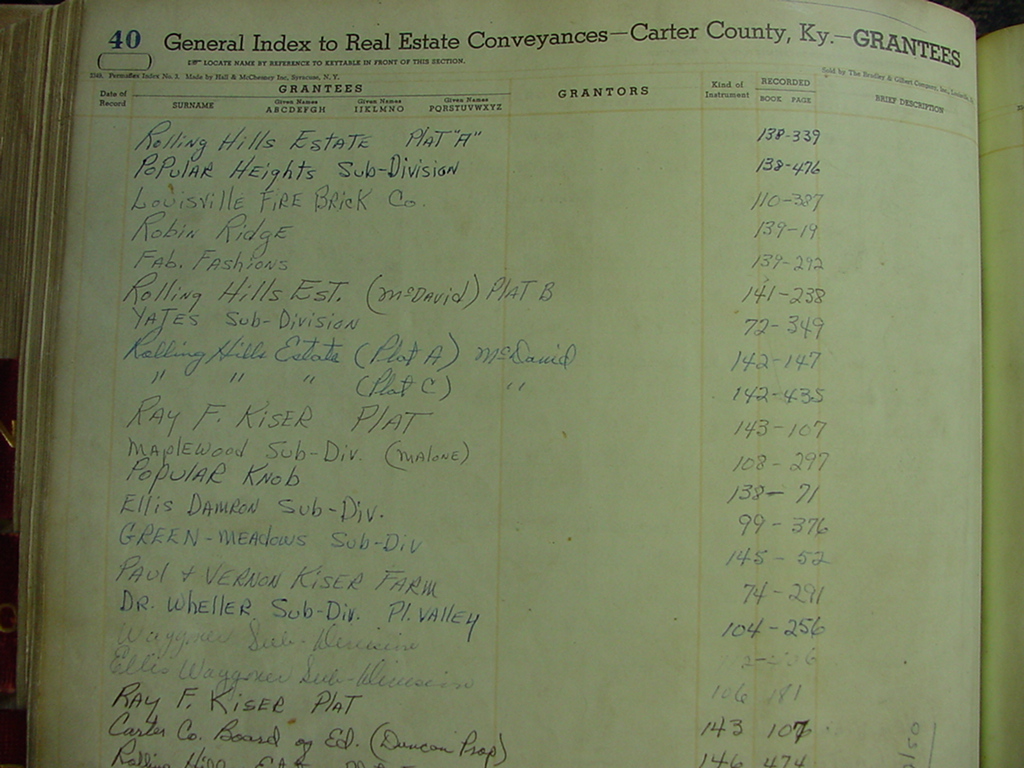 40 General Index to Real Estate Conveyances—Carter County, Ky.—GRANTEES
LOCATE NAME BY REFERENCE TO KEYTABLE IN FRONT OF THIS SECTION.
Permaflex Index No. 3. Made by Hall & McChesney Inc, Syracuse, N. Y. Sold by The Bradley & Gilbert Company, Inc.,
Date of Record GRANTEES GRANTORS Kind of Instrument RECORDED BRIEF DESCRIPTION
SURNAME Given Names ABCDEFGH Given Names IJKLMNO Given Names PQRSTUVWXYZ BOOK PAGE
Rolling Hills Estate Plat "A" 138-339
Popular Heights Sub-Division 138-476
Louisville Fire Brick Co. 110-387
Robin Ridge 139-19
Fab. Fashions 139-292
Rolling Hills Est. (McDavid) Plat B 141-238
Yates Sub-Division 72-349
Rolling Hills Estate (Plat A) McDavid 142-147
" " " (Plat C) " 142-435
Ray F. Kiser Plat 143-107
Maplewood Sub-Div. (Malone) 108-297
Popular Knob 138-71
Ellis Damron Sub-Div. 99-376
Green-Meadows Sub-Div 145-52
Paul + Vernon Kiser Farm 74-291
Dr. Wheller Sub-Div. Pl. Valley 104-256
Waggner Sub-Division
Ellis Waggner Sub-Division 106 181
Ray F. Kiser Plat 143 107
Carter Co. Board of Ed. (Duncan Prop) 146 474
Rolling Hills